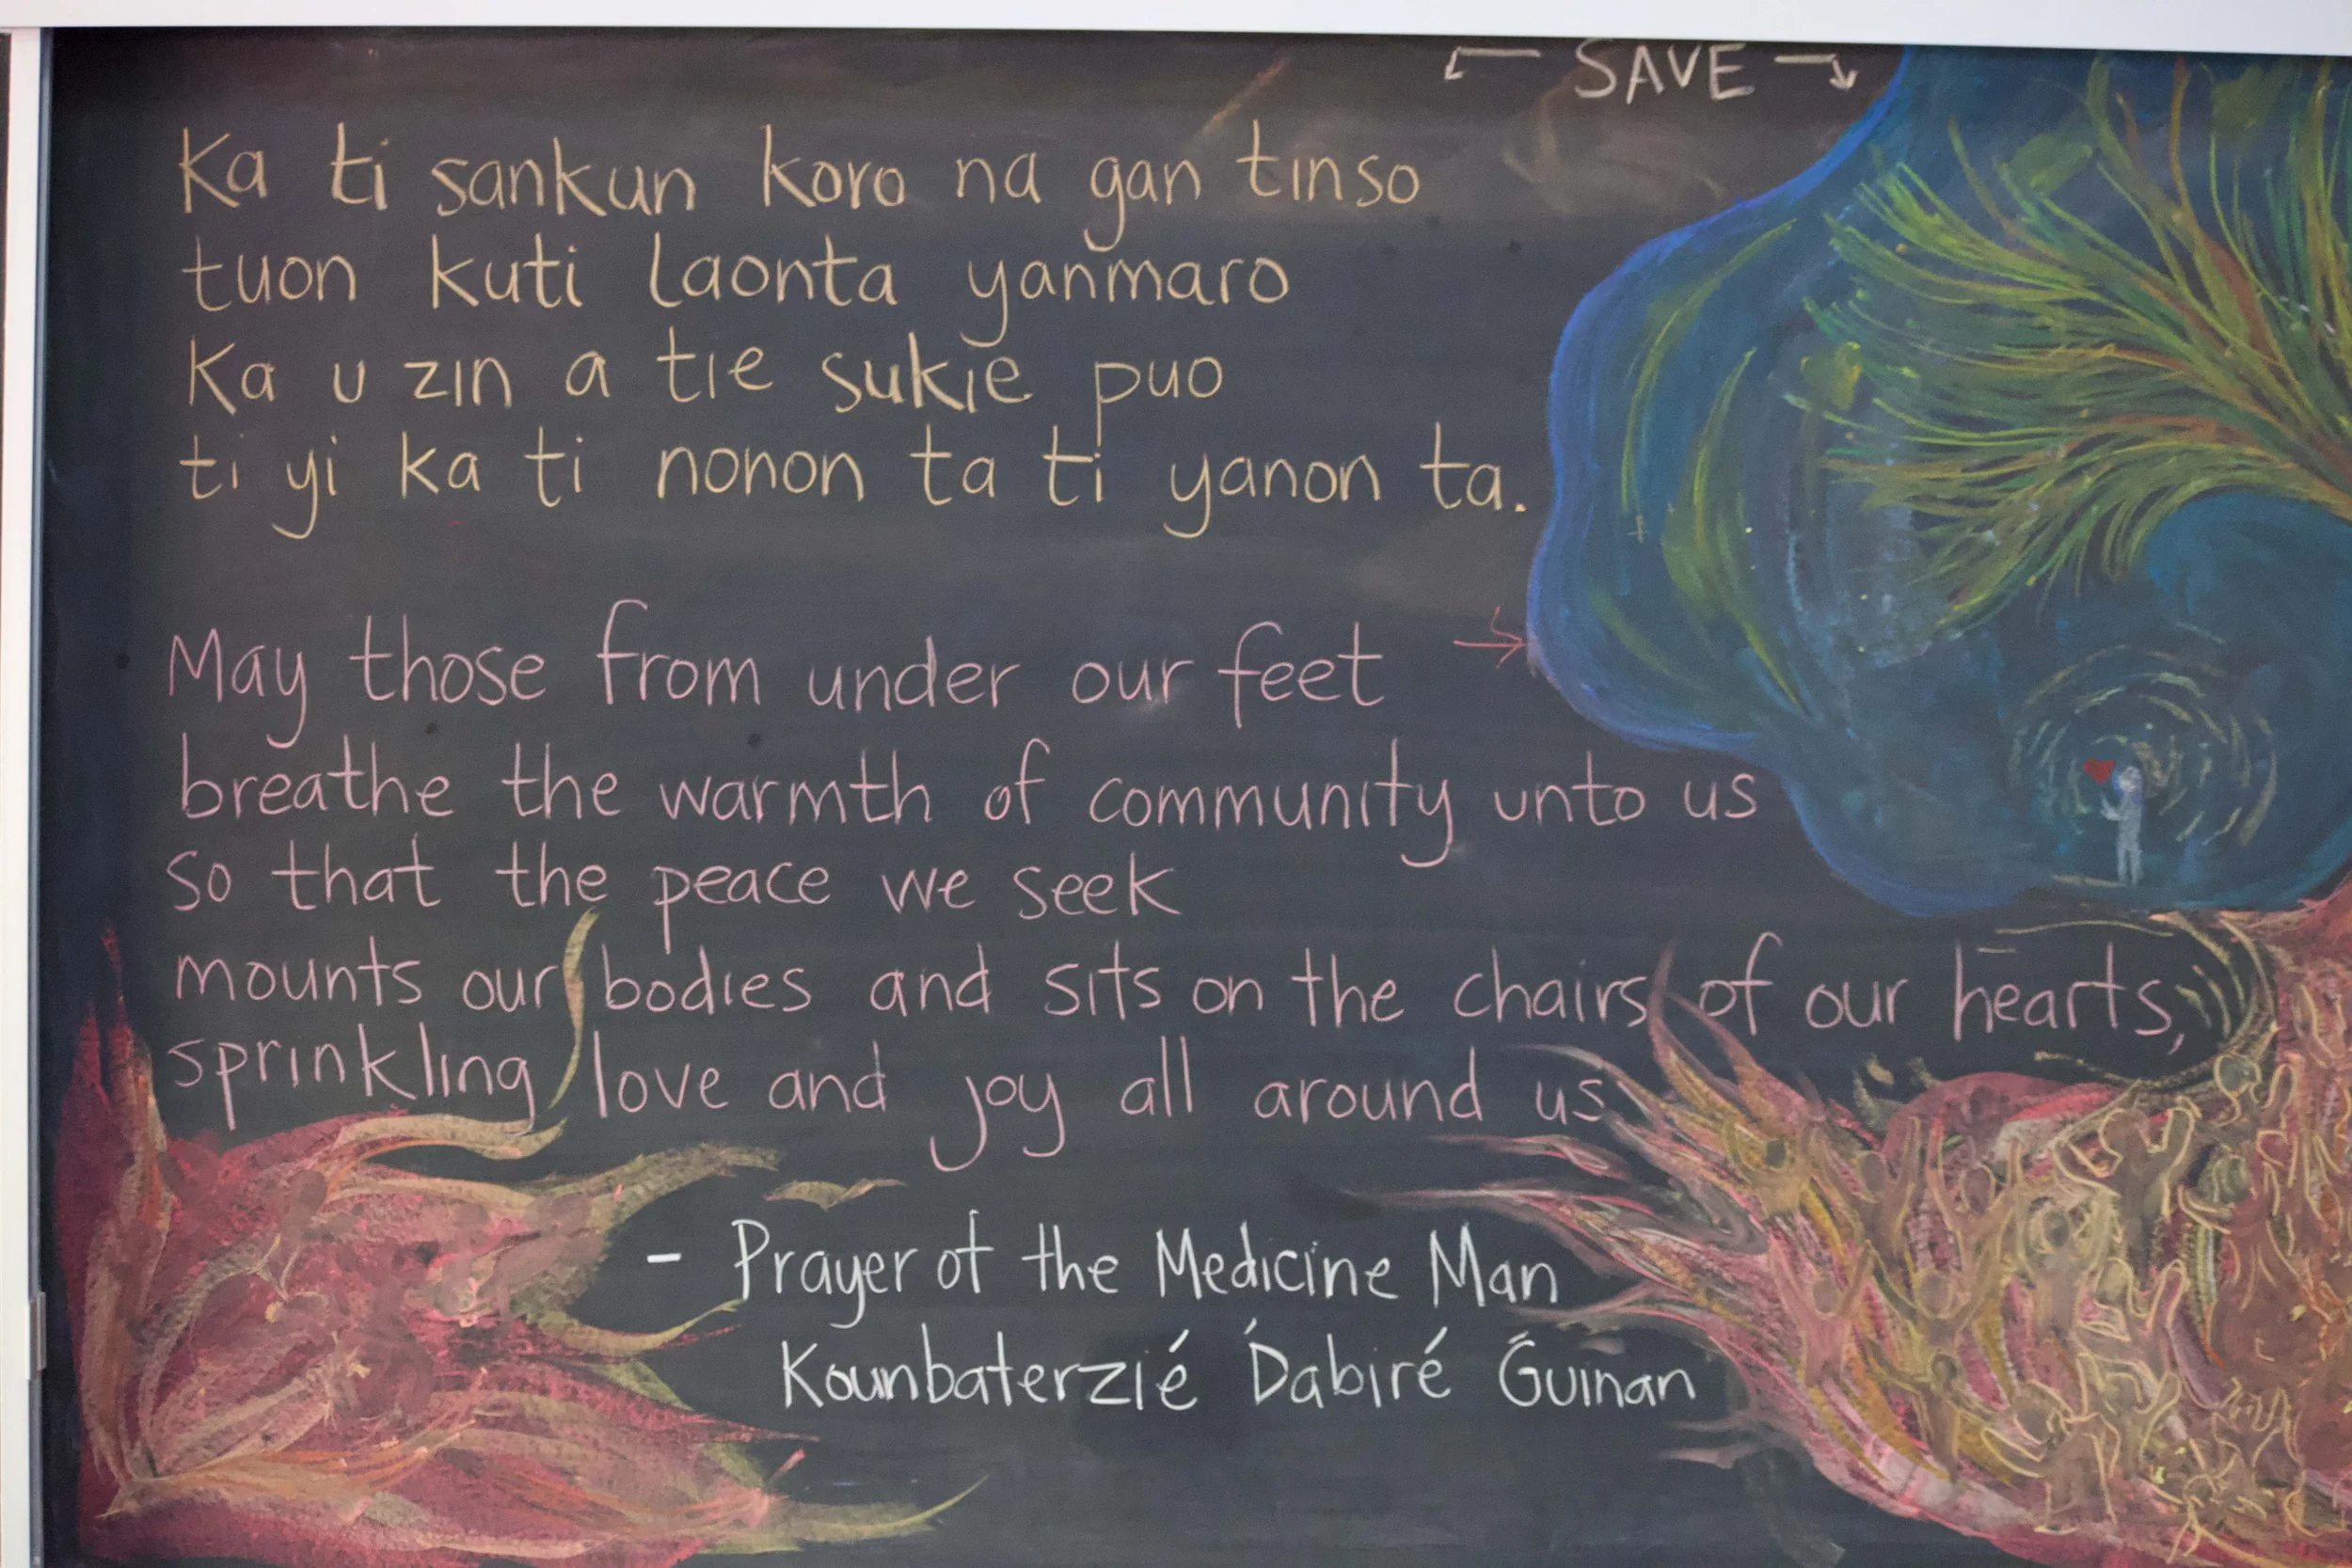 SAVE
Ka ti sankun koro na gan tinso
tuon kuti laonta yanmaro
Ka u zin a tie sukie puo
ti yi ka ti nonon ta ti yanon ta.
May those from under our feet →
breathe the warmth of community unto us
so that the peace we seek
mounts our bodies and sits on the chairs of our hearts,
sprinkling love and joy all around us
- Prayer of the Medicine Man
Kounbaterzié Dabiré Guinan